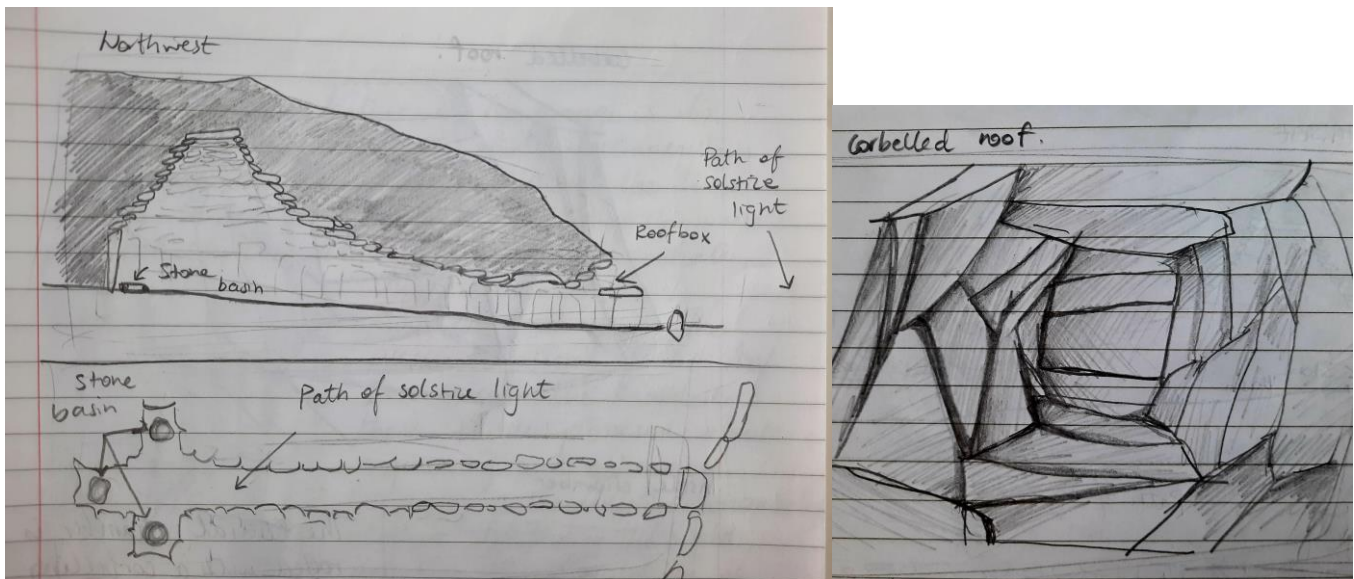 Northwest
Path of
solstice
light
Roofbox
Stone
basin
Stone
basin
Path of solstice light
Corbelled roof.